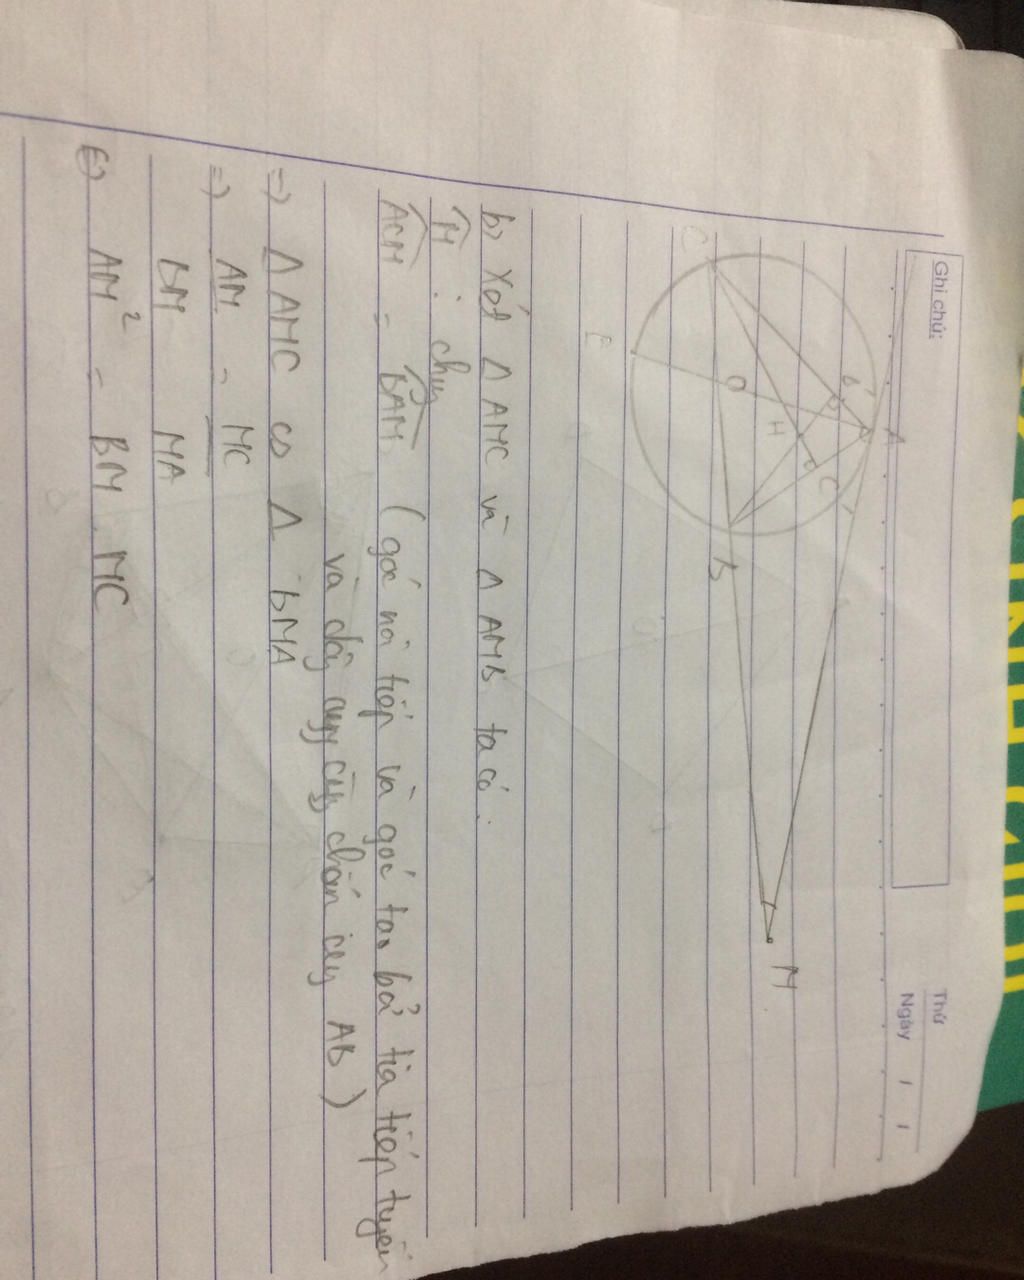 Ghi chú:
Thứ
Ngày / /
A
B'
C'
H
O
C
B
E
M
b) Xét Δ AMC và Δ AMB ta có:
M̂ : chung
ACM = BAM (góc nội tiếp và góc tạo bởi tia tiếp tuyến
và dây cung cùng chắn cung AB)
=> Δ AMC ∽ Δ BMA
=> AM = MC
BM MA
<=> AM² = BM . MC